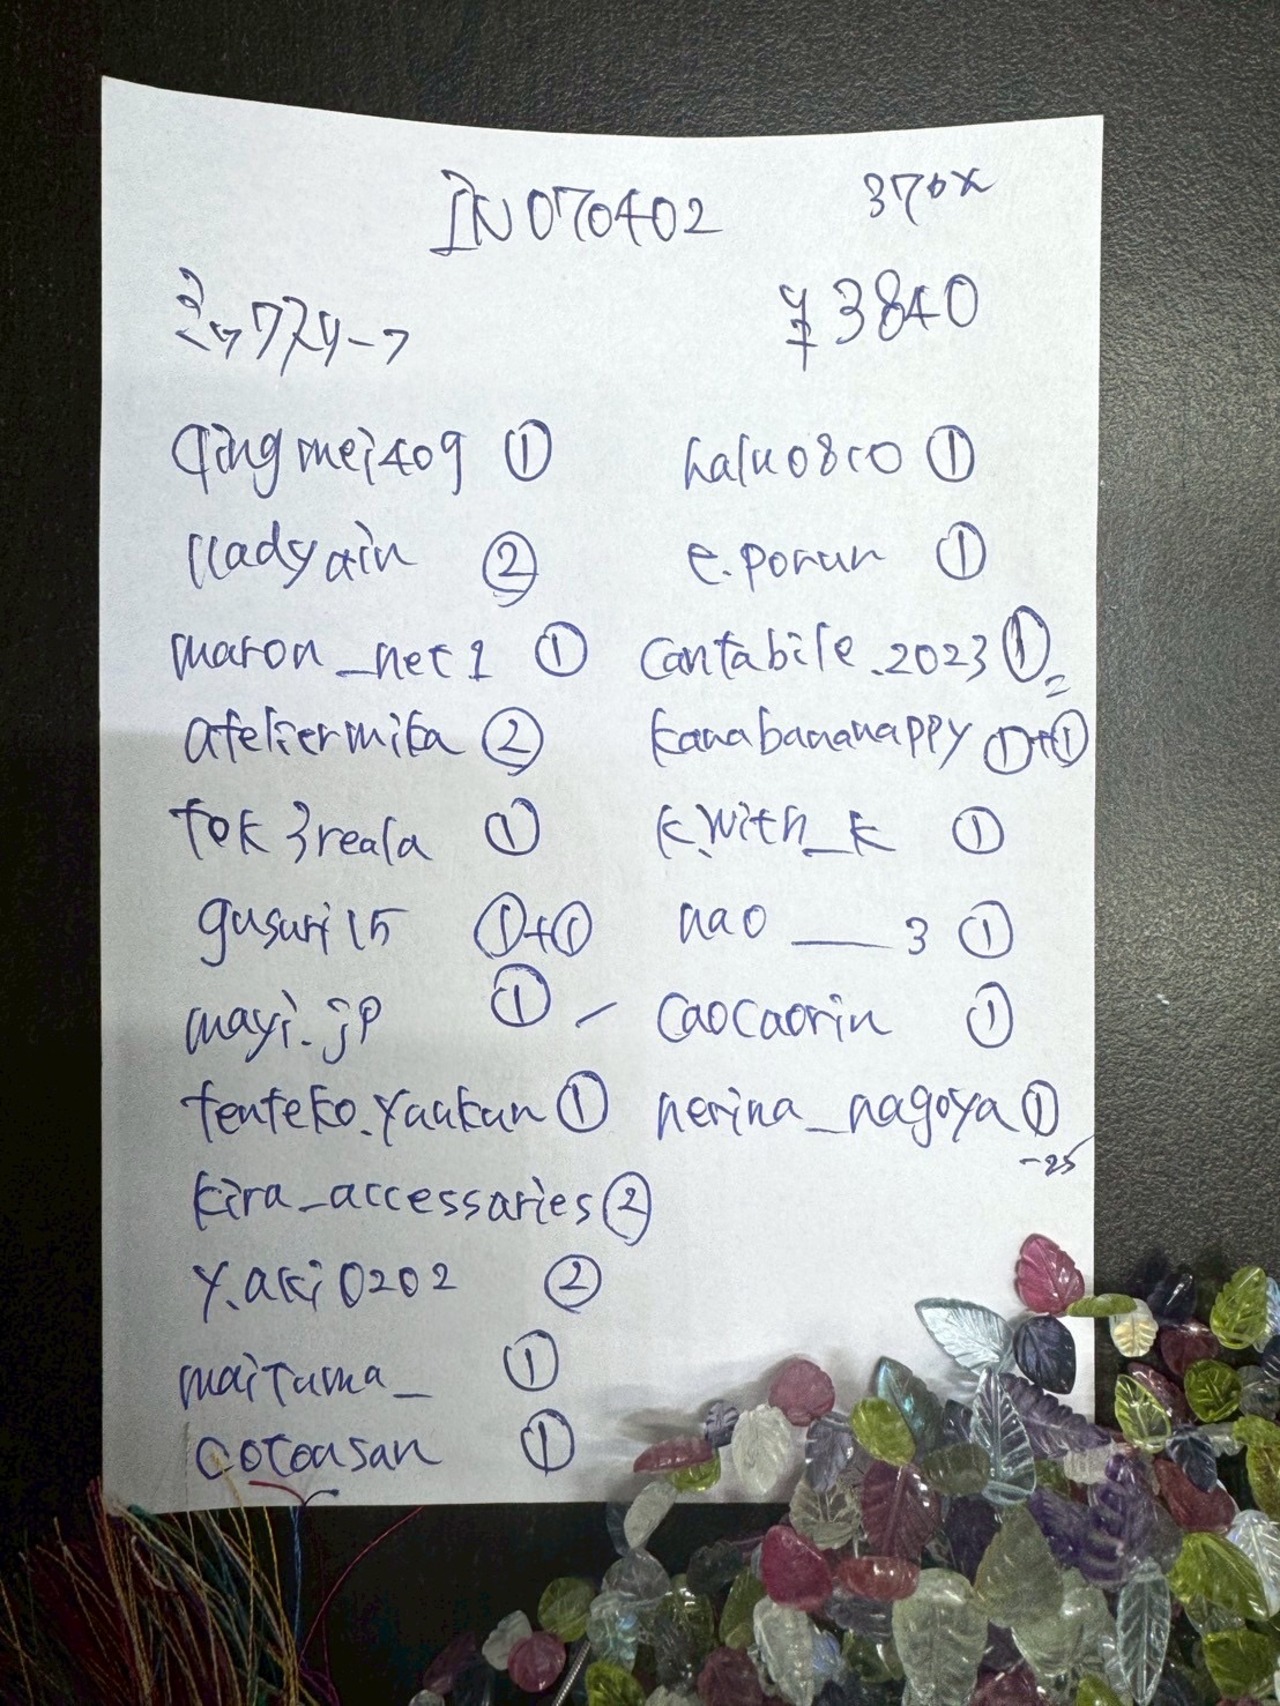 IN070402
370x
ミックスリーフ
¥3840
qingmei409 ①
lladyain ②
maron_net1 ①
ateliermika ②
tok3reala ①
gusuri15 ①+①
mayi.jp ①
tenteko.yuukun ①
kira_accessaries ②
y.aki0202 ②
maituma_ ①
cotousan ①
e.porun ①
cantabile.2023 ①
kanabananappy ①+①
k.with_k ①
nao___3 ①
caocaorin ①
nerina_nagoya ①
-25